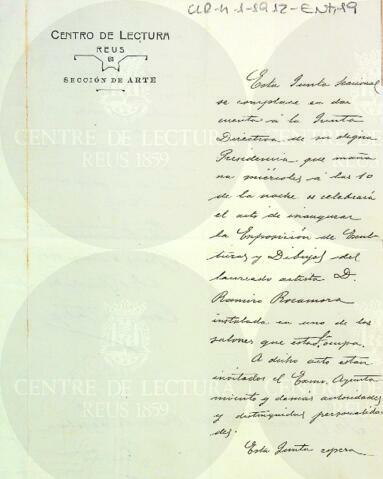 CLR-H-1-1912-ENT,19
CENTRO DE LECTURA
REUS
SECCIÓN DE ARTE
Esta Junta Seccional
se complace en dar
cuenta á la Junta
Directiva de su digna
Presidencia, que maña
na miércoles á las 10
de la noche se celebrará
el acto de inaugurar
la Exposición de Escul
turas y Dibujos del
laureado artista D.
Ramiro Rocamora
instalada en uno de los
salones que esta ocupa.
A dicho acto están
invitados el Exmo. Ayunta
miento y demás autoridades
y distinguidas personalida
des.
Esta Junta espera
CENTRE DE LECTURA
REUS 1859
CENTRE DE LECTURA
REUS 1859